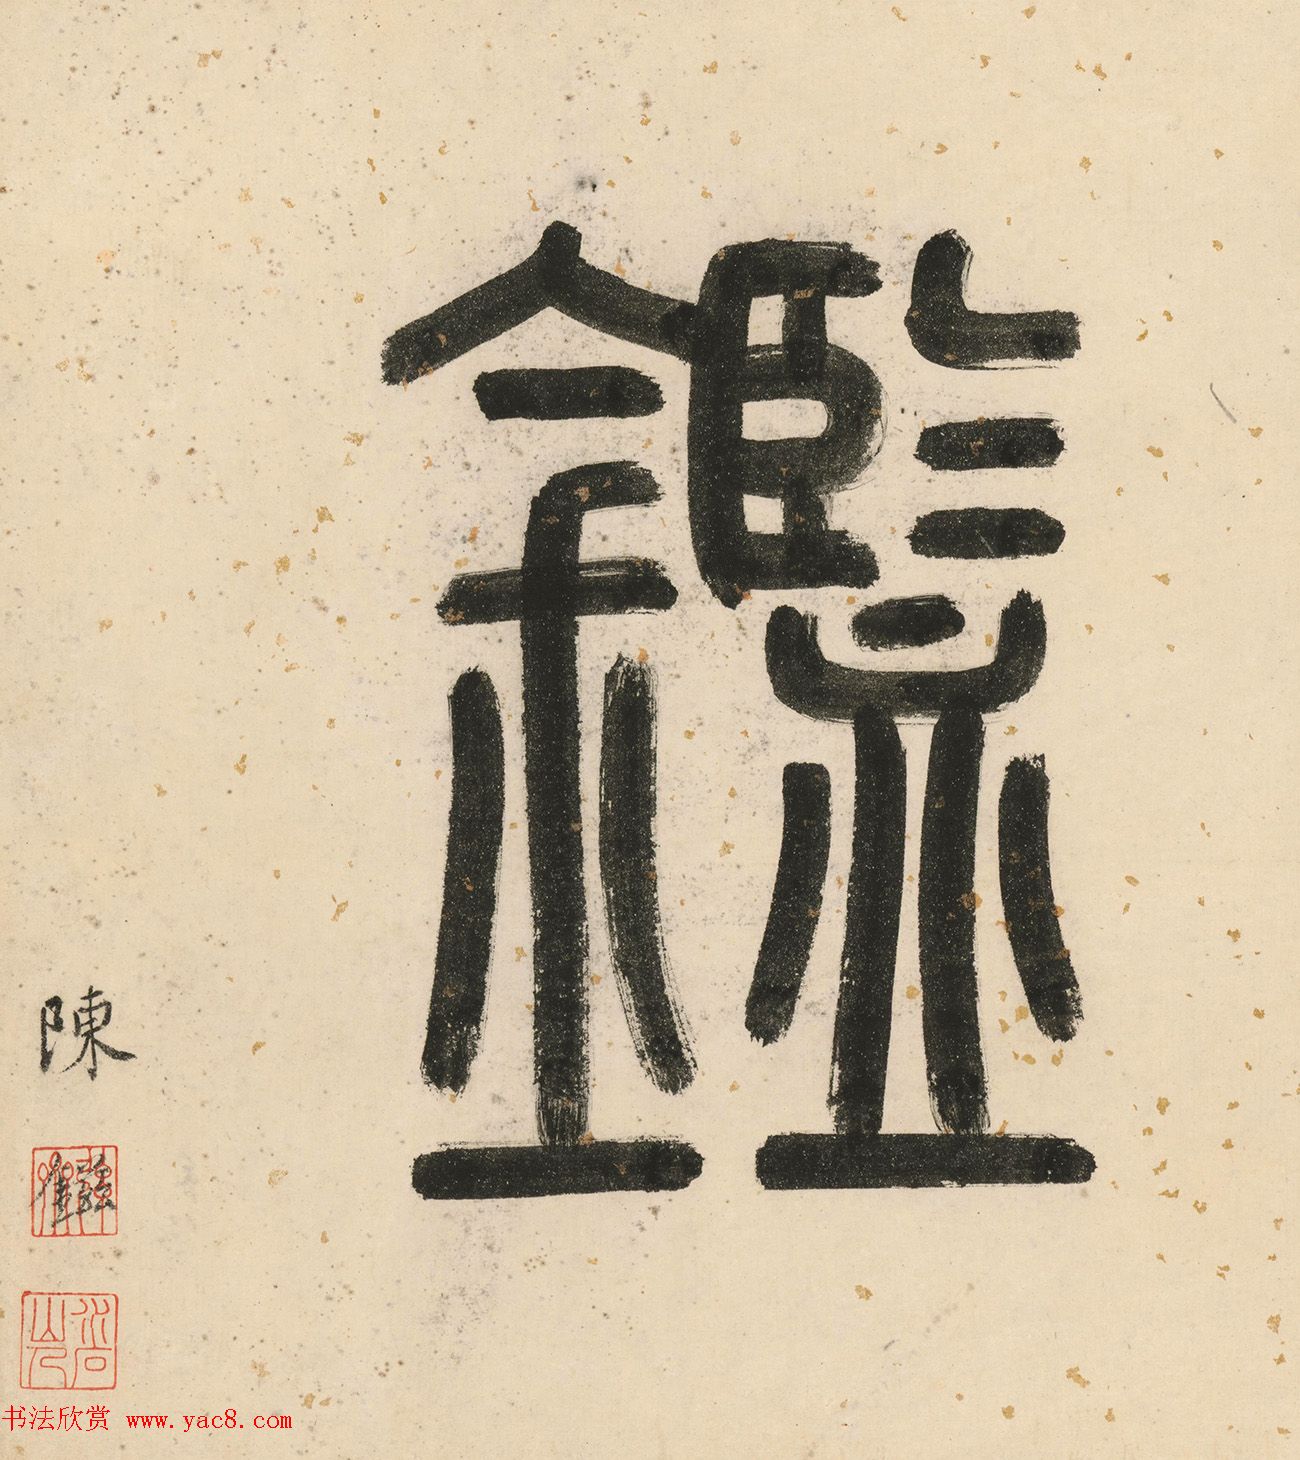 鑑
陳
書法欣赏 www.yac8.com